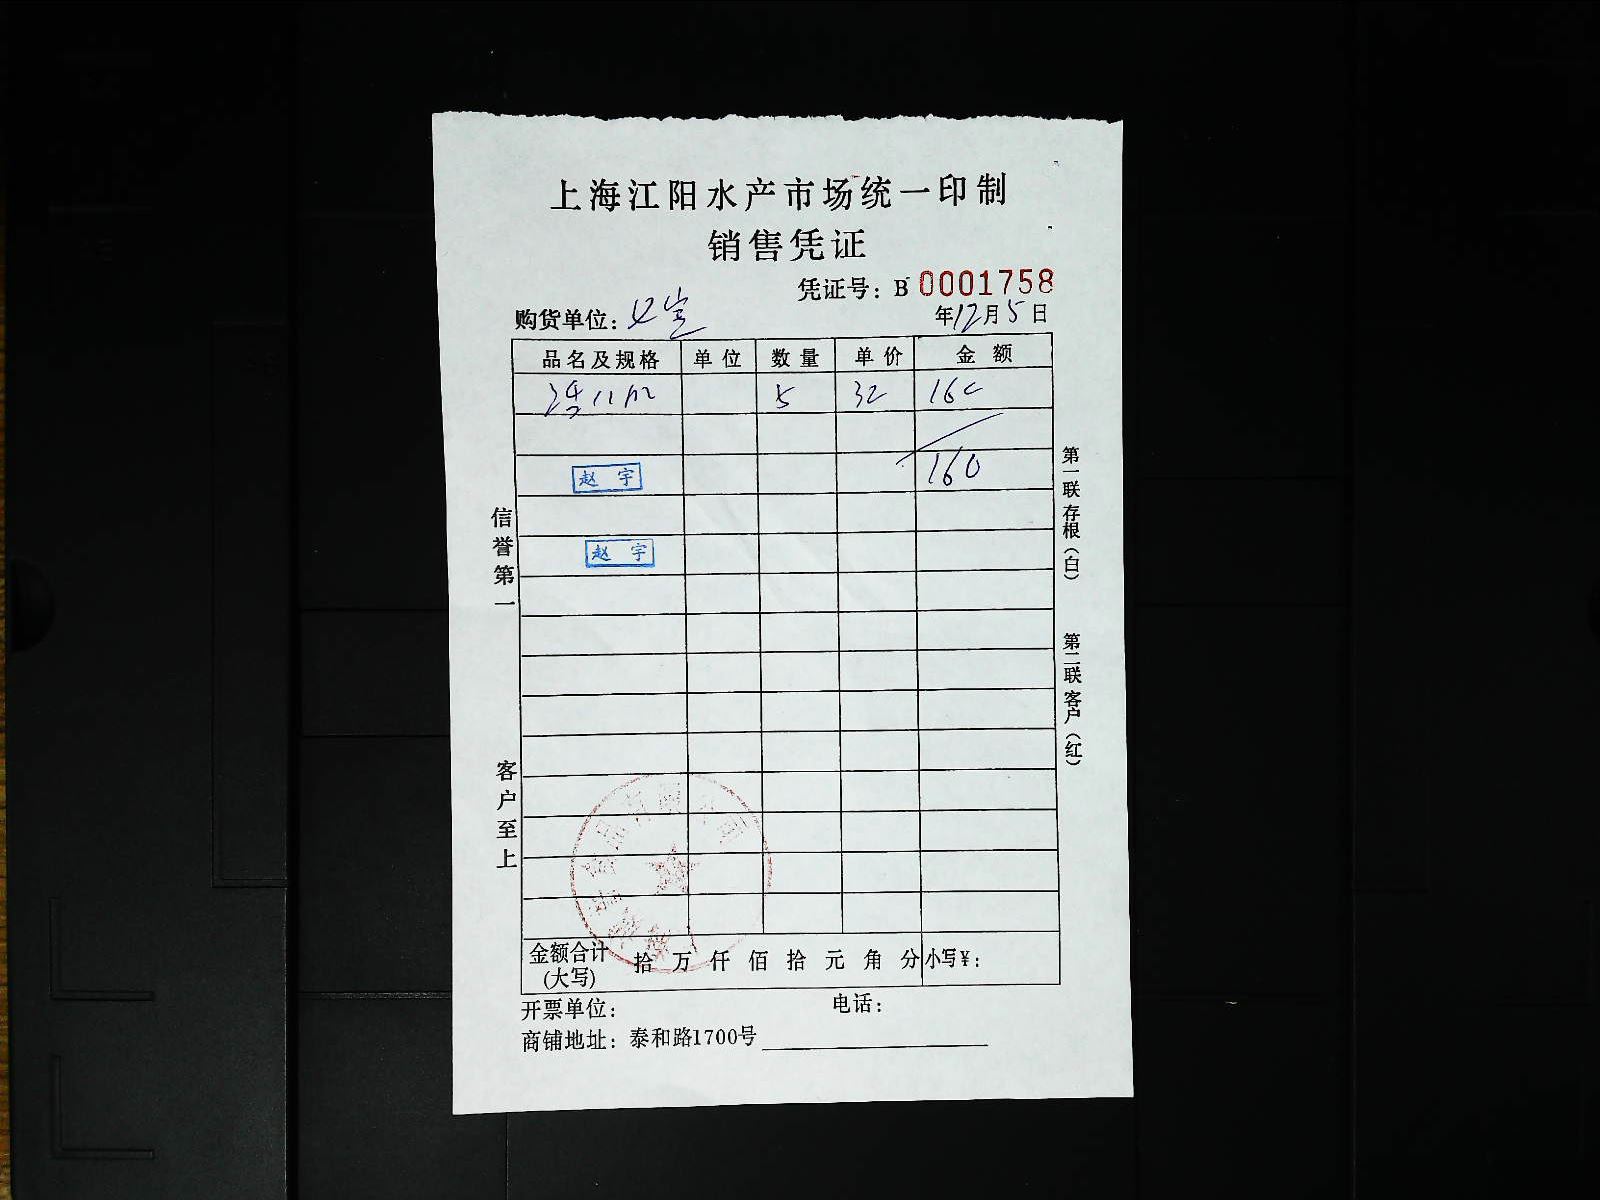 上海江阳水产市场统一印制
销售凭证
凭证号：B 0001758
购货单位：
年12月5日
品名及规格 单位 数量 单价 金额
5 32 160
160
赵宇
赵宇
信誉第一
客户至上
第一联存根（白）
第二联客户（红）
金额合计(大写) 拾万仟佰拾元角分 小写¥：
开票单位： 电话：
商铺地址：泰和路1700号